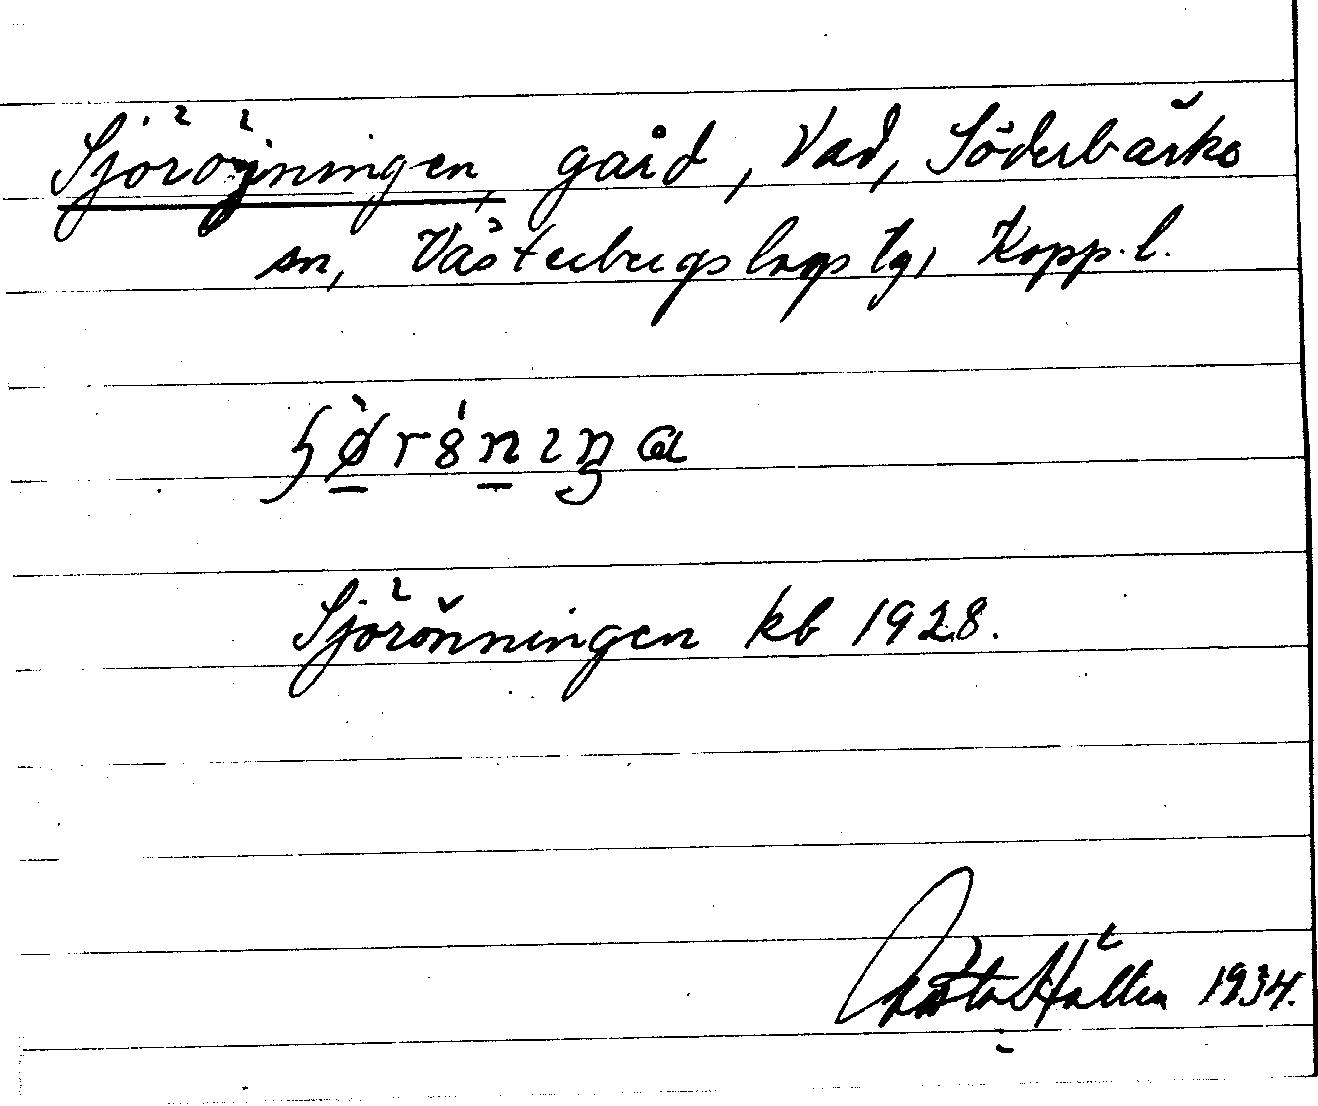 Sjöröjningen, gård, Vad, Söderbärke
sn, Västerbergslags tg, Kopp. l.
Sjörönningen kb 1928.
Gösta Hållén 1934.